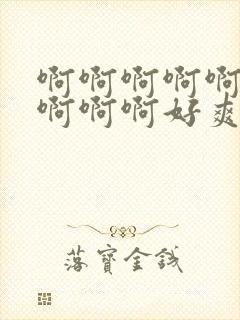 啊啊啊啊啊
啊啊啊好爽
落寶金錢